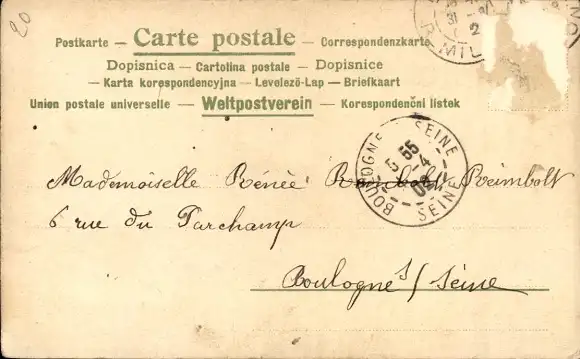 20
Postkarte — Carte postale — Correspondenzkarte
Dopisnica — Cartolina postale — Dopisnice
— Karta korespondencyjna — Levelező-Lap — Briefkaart
Union postale universelle — Weltpostverein — Korespondenční lístek
BOULOGNE SEINE
SEINE
Mademoiselle Rénée Reimbolt
6 rue du Parchamp
Boulogne s/ Séine